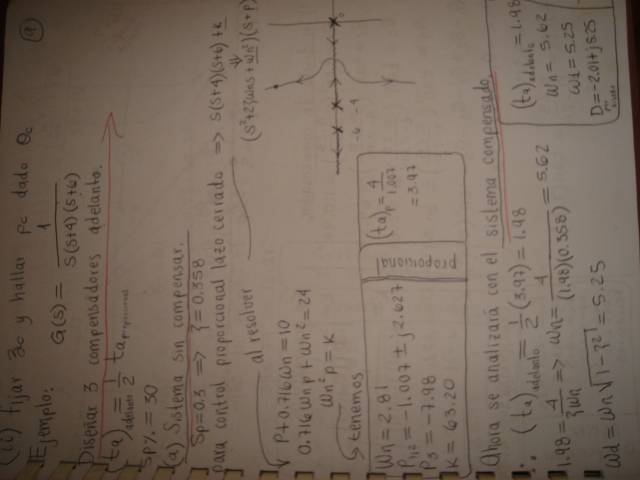 (ii) fijar zc y hallar pc dado θc
(9)
Ejemplo:
G(s) = 1 / s(s+4)(s+6)
Diseñar 3 compensadores adelanto.
(ta)adelanto = 1/2 ta proporcional
Sp% = 30
(a) Sistema sin compensar.
Sp=0.3 => ξ=0.358
para control proporcional lazo cerrado => s(s+4)(s+6)+k
(s²+2ξωns+ωn²)(s+p)
al resolver
p+0.716ωn=10
0.716ωnp+ωn²=24
ωn²p=k
-6 -4
tenemos
Wn=2.81
P1,2=-1.007±j2.627
P3=-7.98
K=63.20
proporcional
(ta)p=4/1.007
=3.97
Ahora se analizará con el sistema compensado
∴ (ta)adelanto=1/2(3.97)=1.98
1.98=4/ξωn => ωn=4/(1.98)(0.358)=5.62
ωd=ωn√1-ξ²=5.25
(ta)adelanto=1.98
ωn=5.62
ωd=5.25
D=-2.01+j5.25